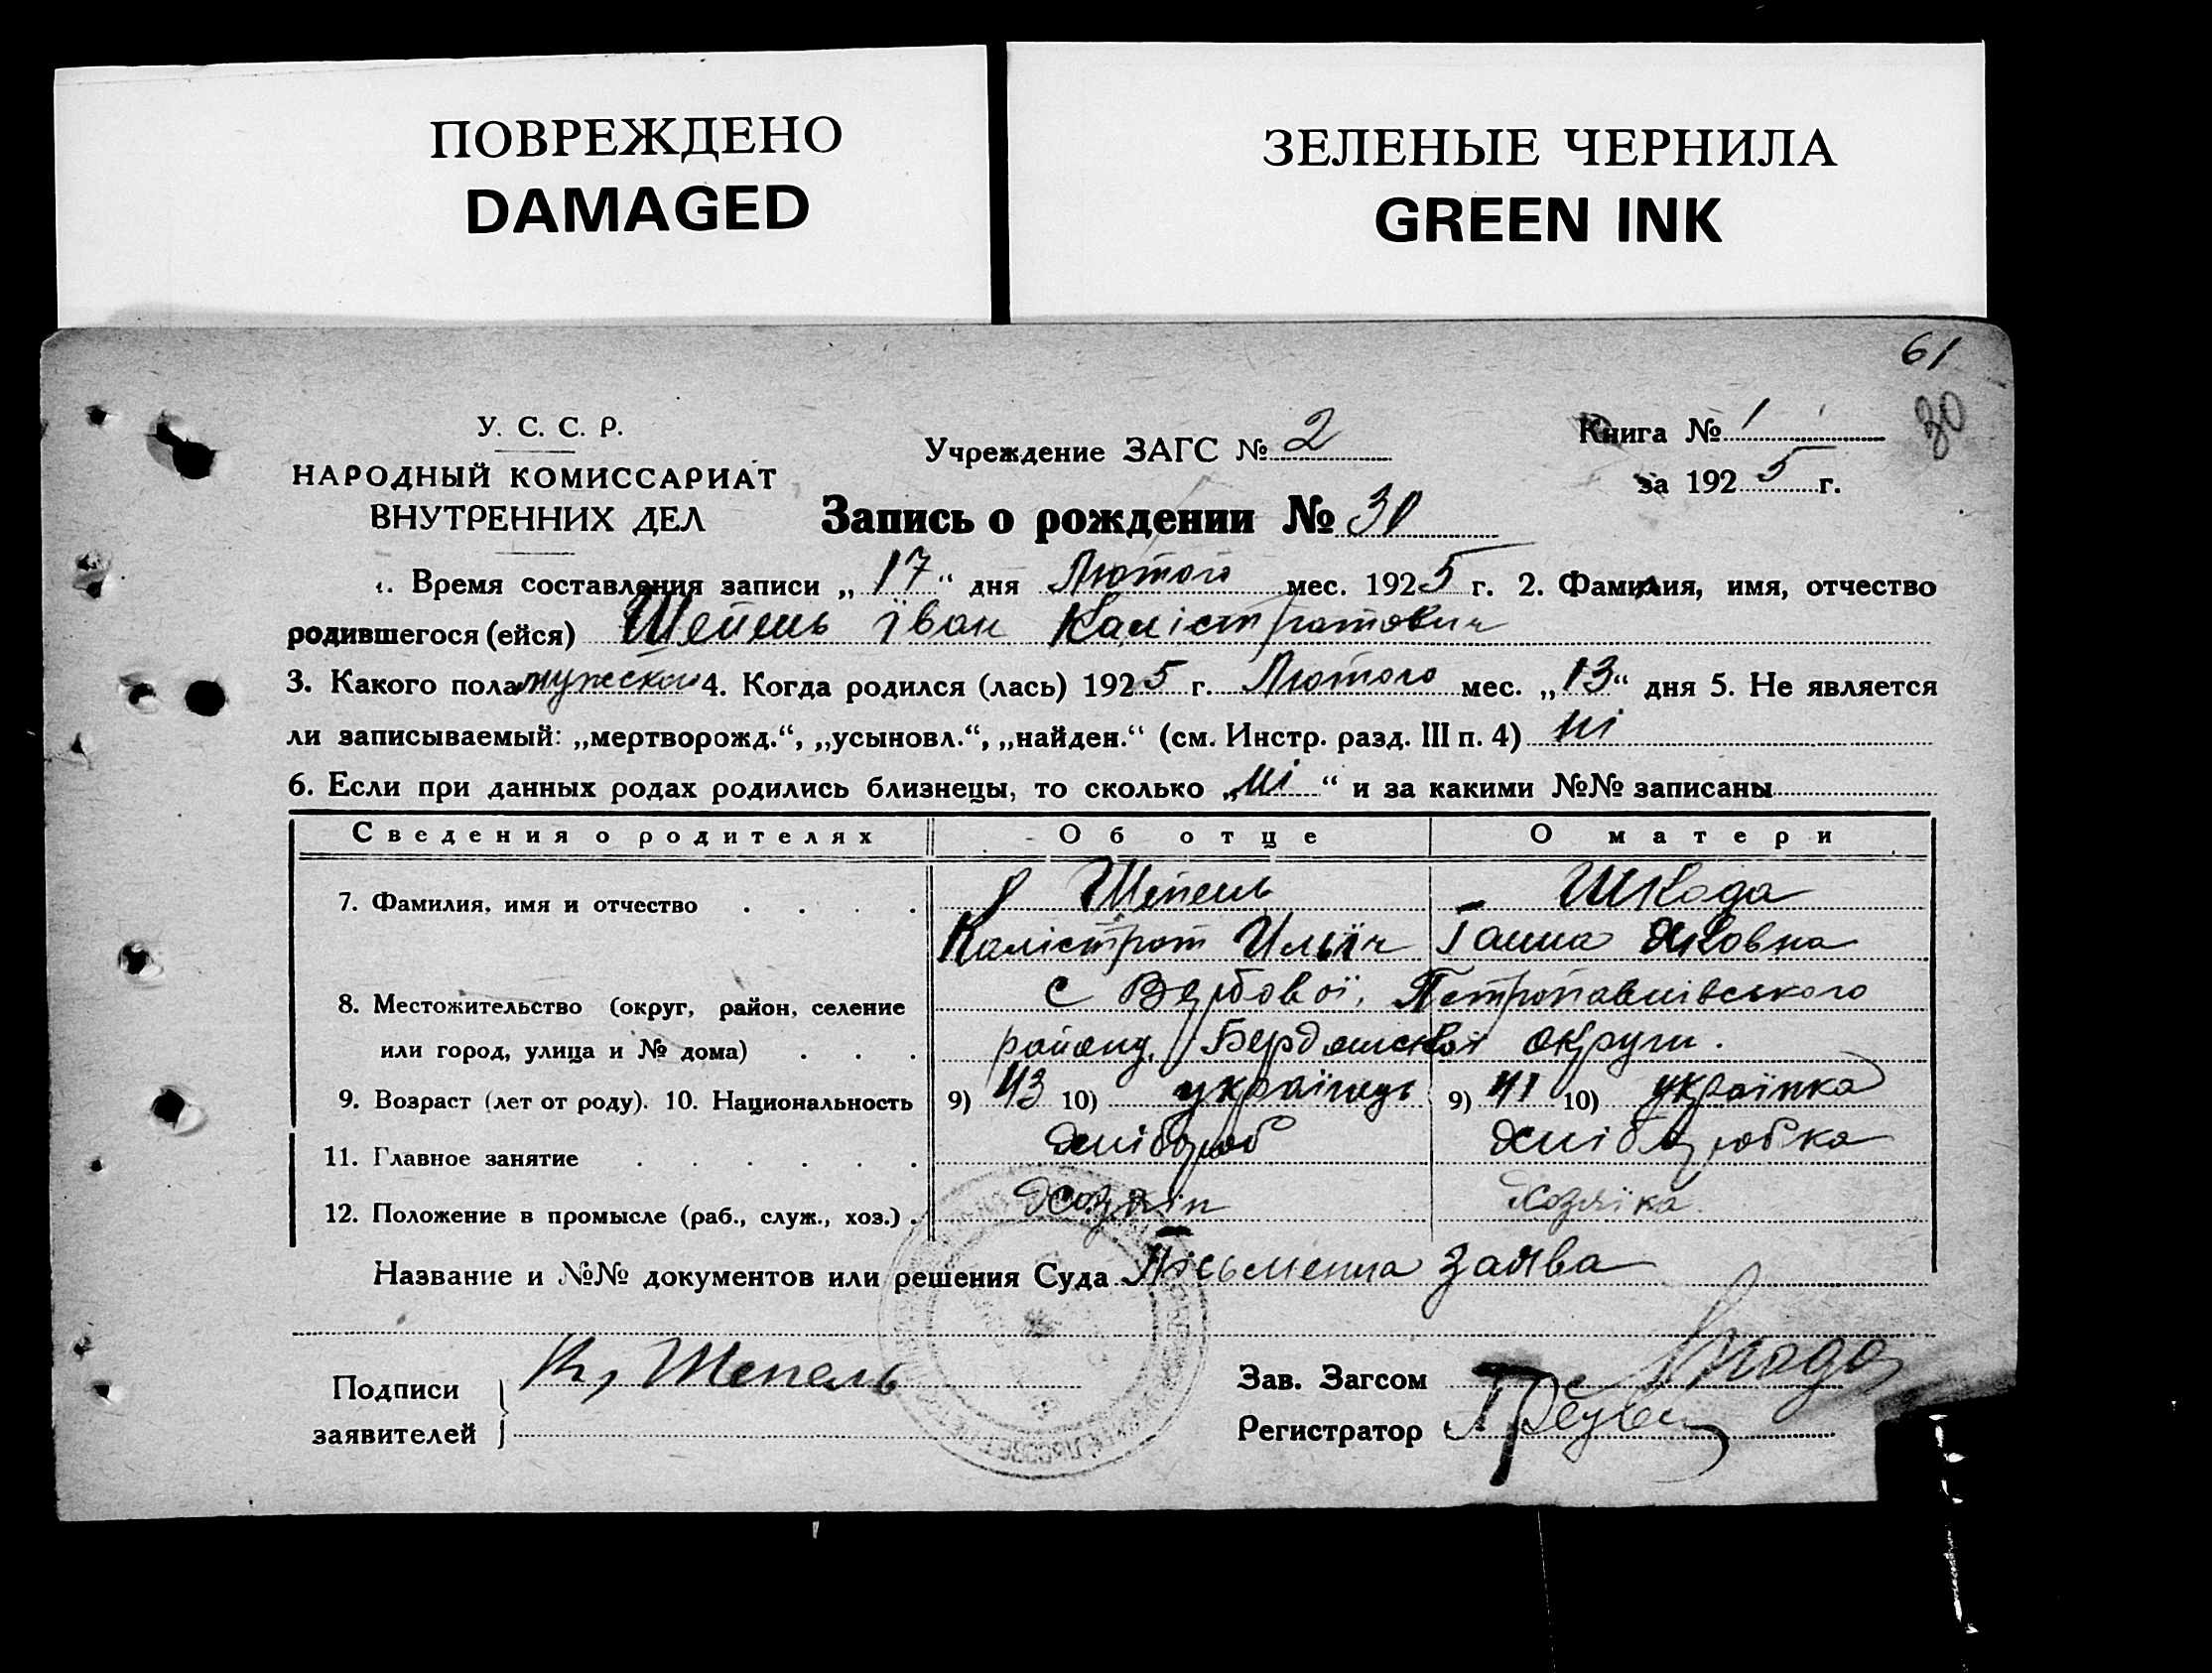 ПОВРЕЖДЕНО
DAMAGED
ЗЕЛЕНЫЕ ЧЕРНИЛА
GREEN INK
61
30
У. С. С. Р.
НАРОДНЫЙ КОМИССАРИАТ
ВНУТРЕННИХ ДЕЛ
Учреждение ЗАГС № 2
Книга № 1
за 1925 г.
Запись о рождении № 30
1. Время составления записи „17“ дня Лютого мес. 1925 г. 2. Фамилия, имя, отчество
родившегося (ейся) Шепель Іван Калістратович
3. Какого пола мужеского 4. Когда родился (лась) 1925 г. Лютого мес. „13“ дня 5. Не является
ли записываемый: „мертворожд.“, „усыновл.“, „найден.“ (см. Инстр. разд. III п. 4) ні
6. Если при данных родах родились близнецы, то сколько „ні“ и за какими №№ записаны
Сведения о родителях Об отце О матери
7. Фамилия, имя и отчество Шепель Шкода
Калістрат Ильїч Ганна
8. Местожительство (округ, район, селение с Вербової, Петропавлівського
или город, улица и № дома) району, Бердянської округи.
9. Возраст (лет от роду). 10. Национальность 9) 43 10) українець 9) 41 10) українка
11. Главное занятие хлібороб хліборобка
12. Положение в промысле (раб., служ., хоз.) Хозяїн Хозяїка
Название и №№ документов или решения Суда Письменна заява
Подписи К, Шепель
заявителей
Зав. Загсом
Регистратор